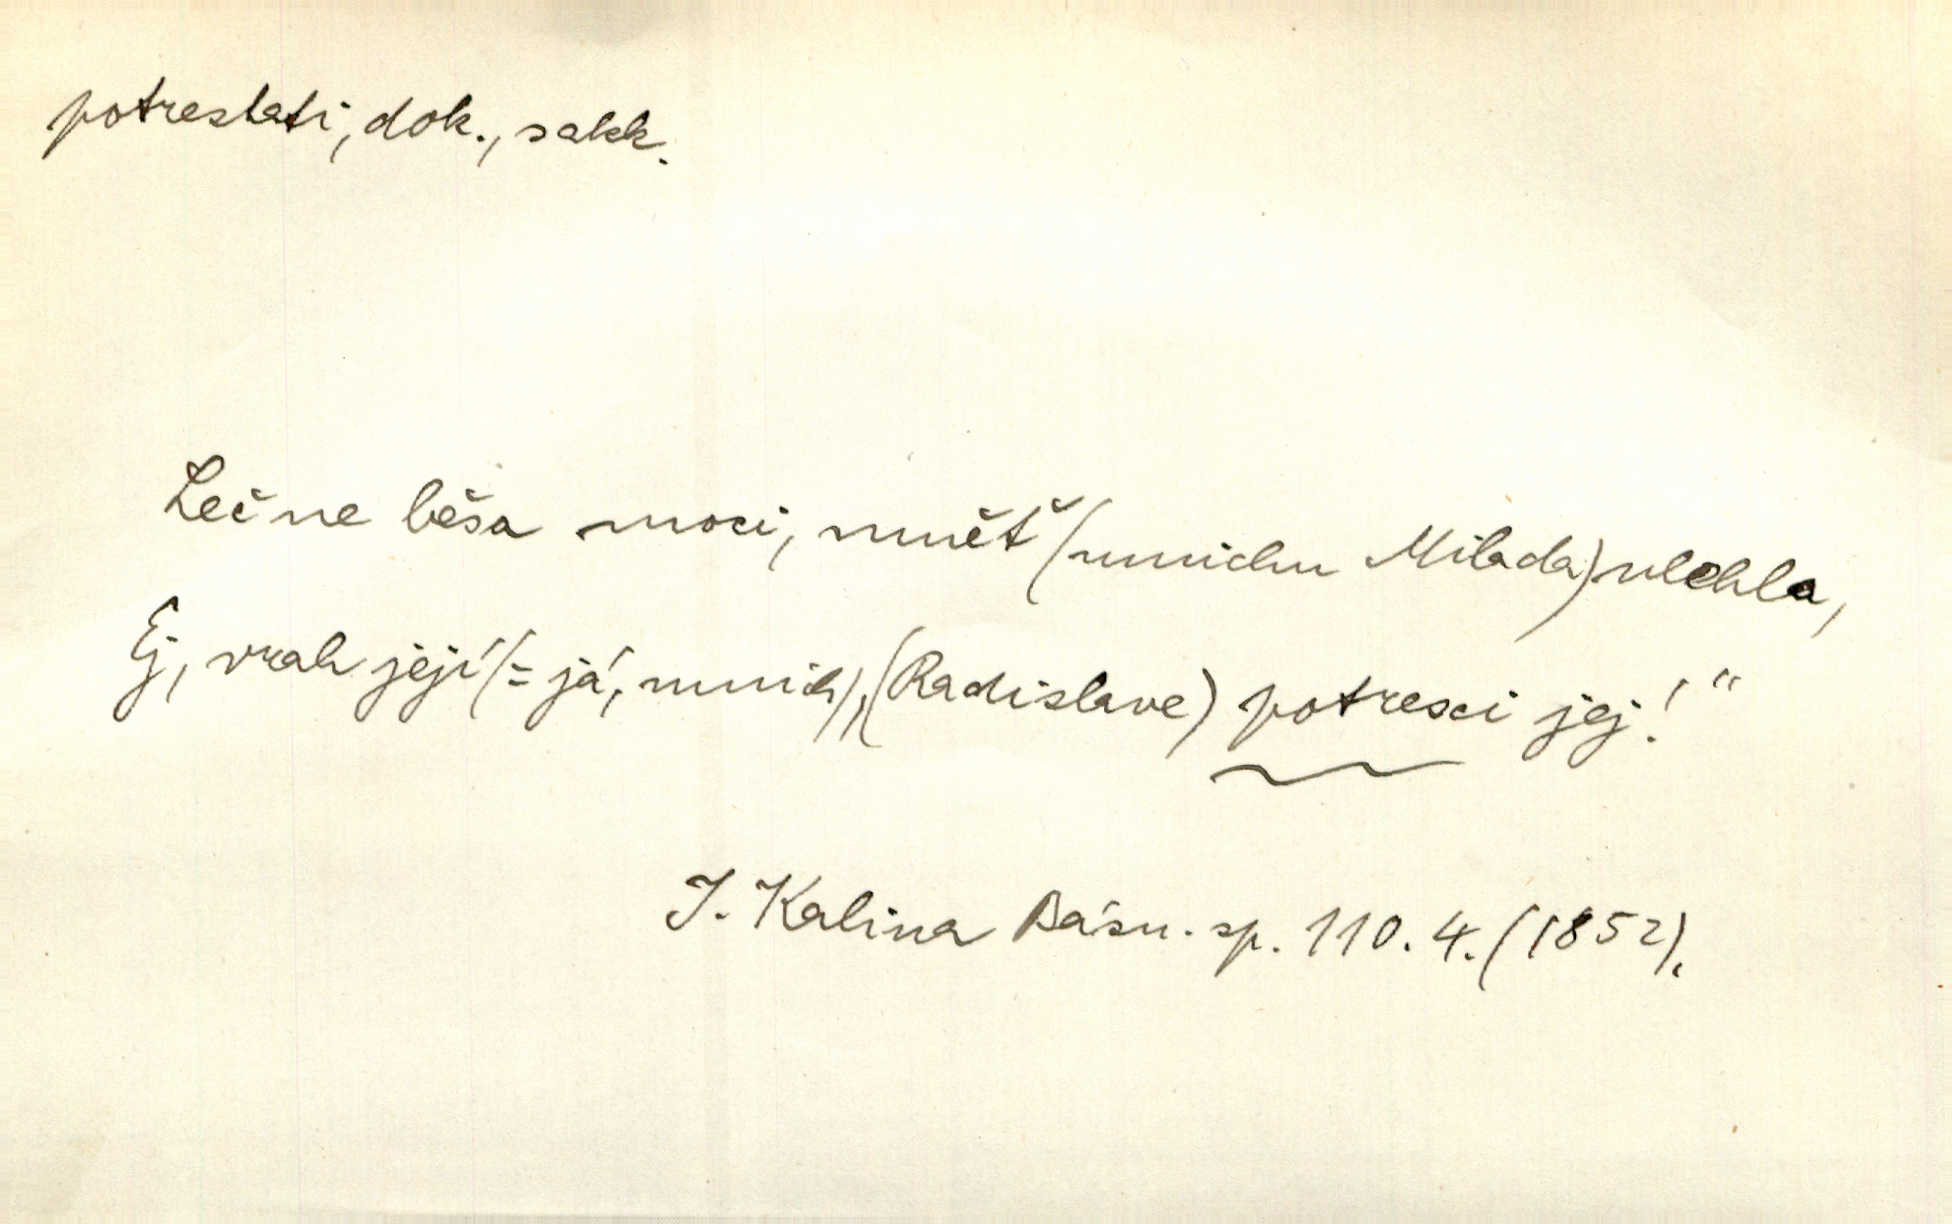 potrestati, dok., sakk.
Leč ne běsa moci, mnětˇ (mnichu Milada) ulehla,
Ej, vrah její (= já, mnich), (Radislave) potresci jej!“
J. Kalina Básn. sp. 110. 4. (1852).